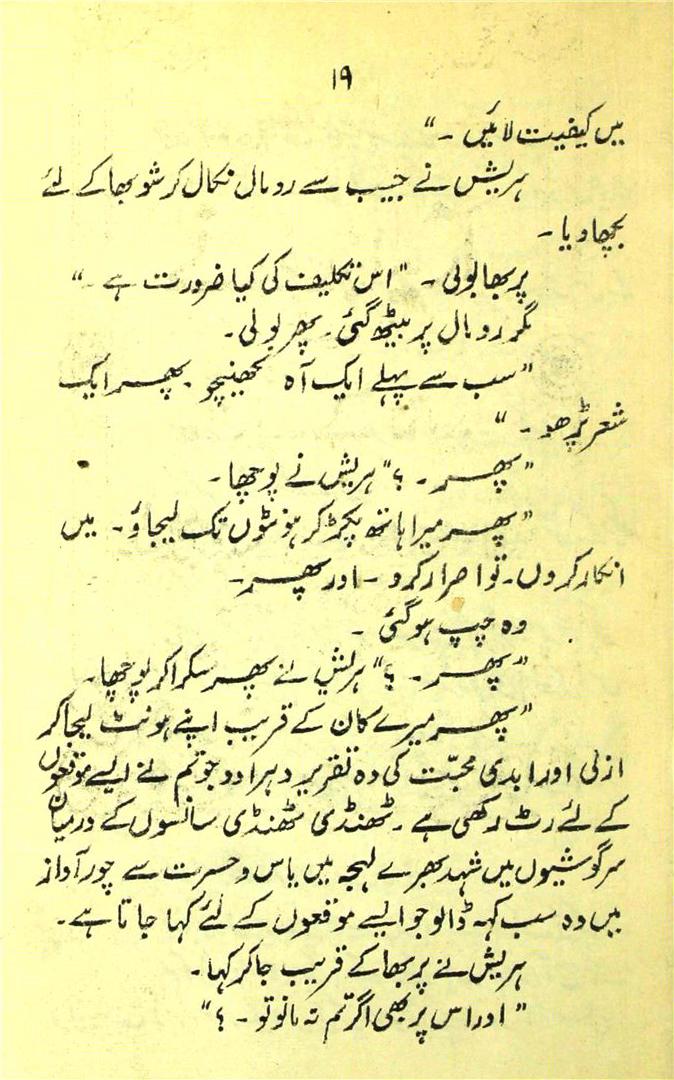 ۱۹
میں کیفیت لائیں ۔"
ہریش نے جیب سے رومال نکال کر شوبھا کے لئے
بچھا دیا ۔
پربھا بولی ۔ "اس تکلیف کی کیا ضرورت ہے ۔"
مگر رومال پر بیٹھ گئی ۔ پھر بولی ۔
"سب سے پہلے ایک آہ کھینچو ۔ پھر ایک
شعر پڑھو ۔ "
"پھر ۔ ؟" ہریش نے پوچھا ۔
"پھر میرا ہاتھ پکڑ کر ہونٹوں تک لیجاؤ ۔ میں
انکار کروں ۔ تو اصرار کرو ۔ اور پھر ۔
وہ چپ ہو گئی ۔
"پھر ۔ ؟" ہریش نے پھر مسکرا کر پوچھا ۔
"پھر میرے کان کے قریب اپنے ہونٹ لیجا کر
ازلی اور ابدی محبّت کی وہ تقریر دہرا دو جو تم نے ایسے موقعوں
کے لئے رٹ رکھی ہے ۔ ٹھنڈی ٹھنڈی سانسوں کے درمیان
سرگوشیوں میں شہد بھرے لہجہ میں یاس و حسرت سے چور آواز
میں وہ سب کہہ ڈالو جو ایسے موقعوں کے لئے کہا جاتا ہے ۔
ہریش نے پربھا کے قریب جا کر کہا ۔
"اور اس پر بھی اگر تم نہ مانو تو ۔ ؟"